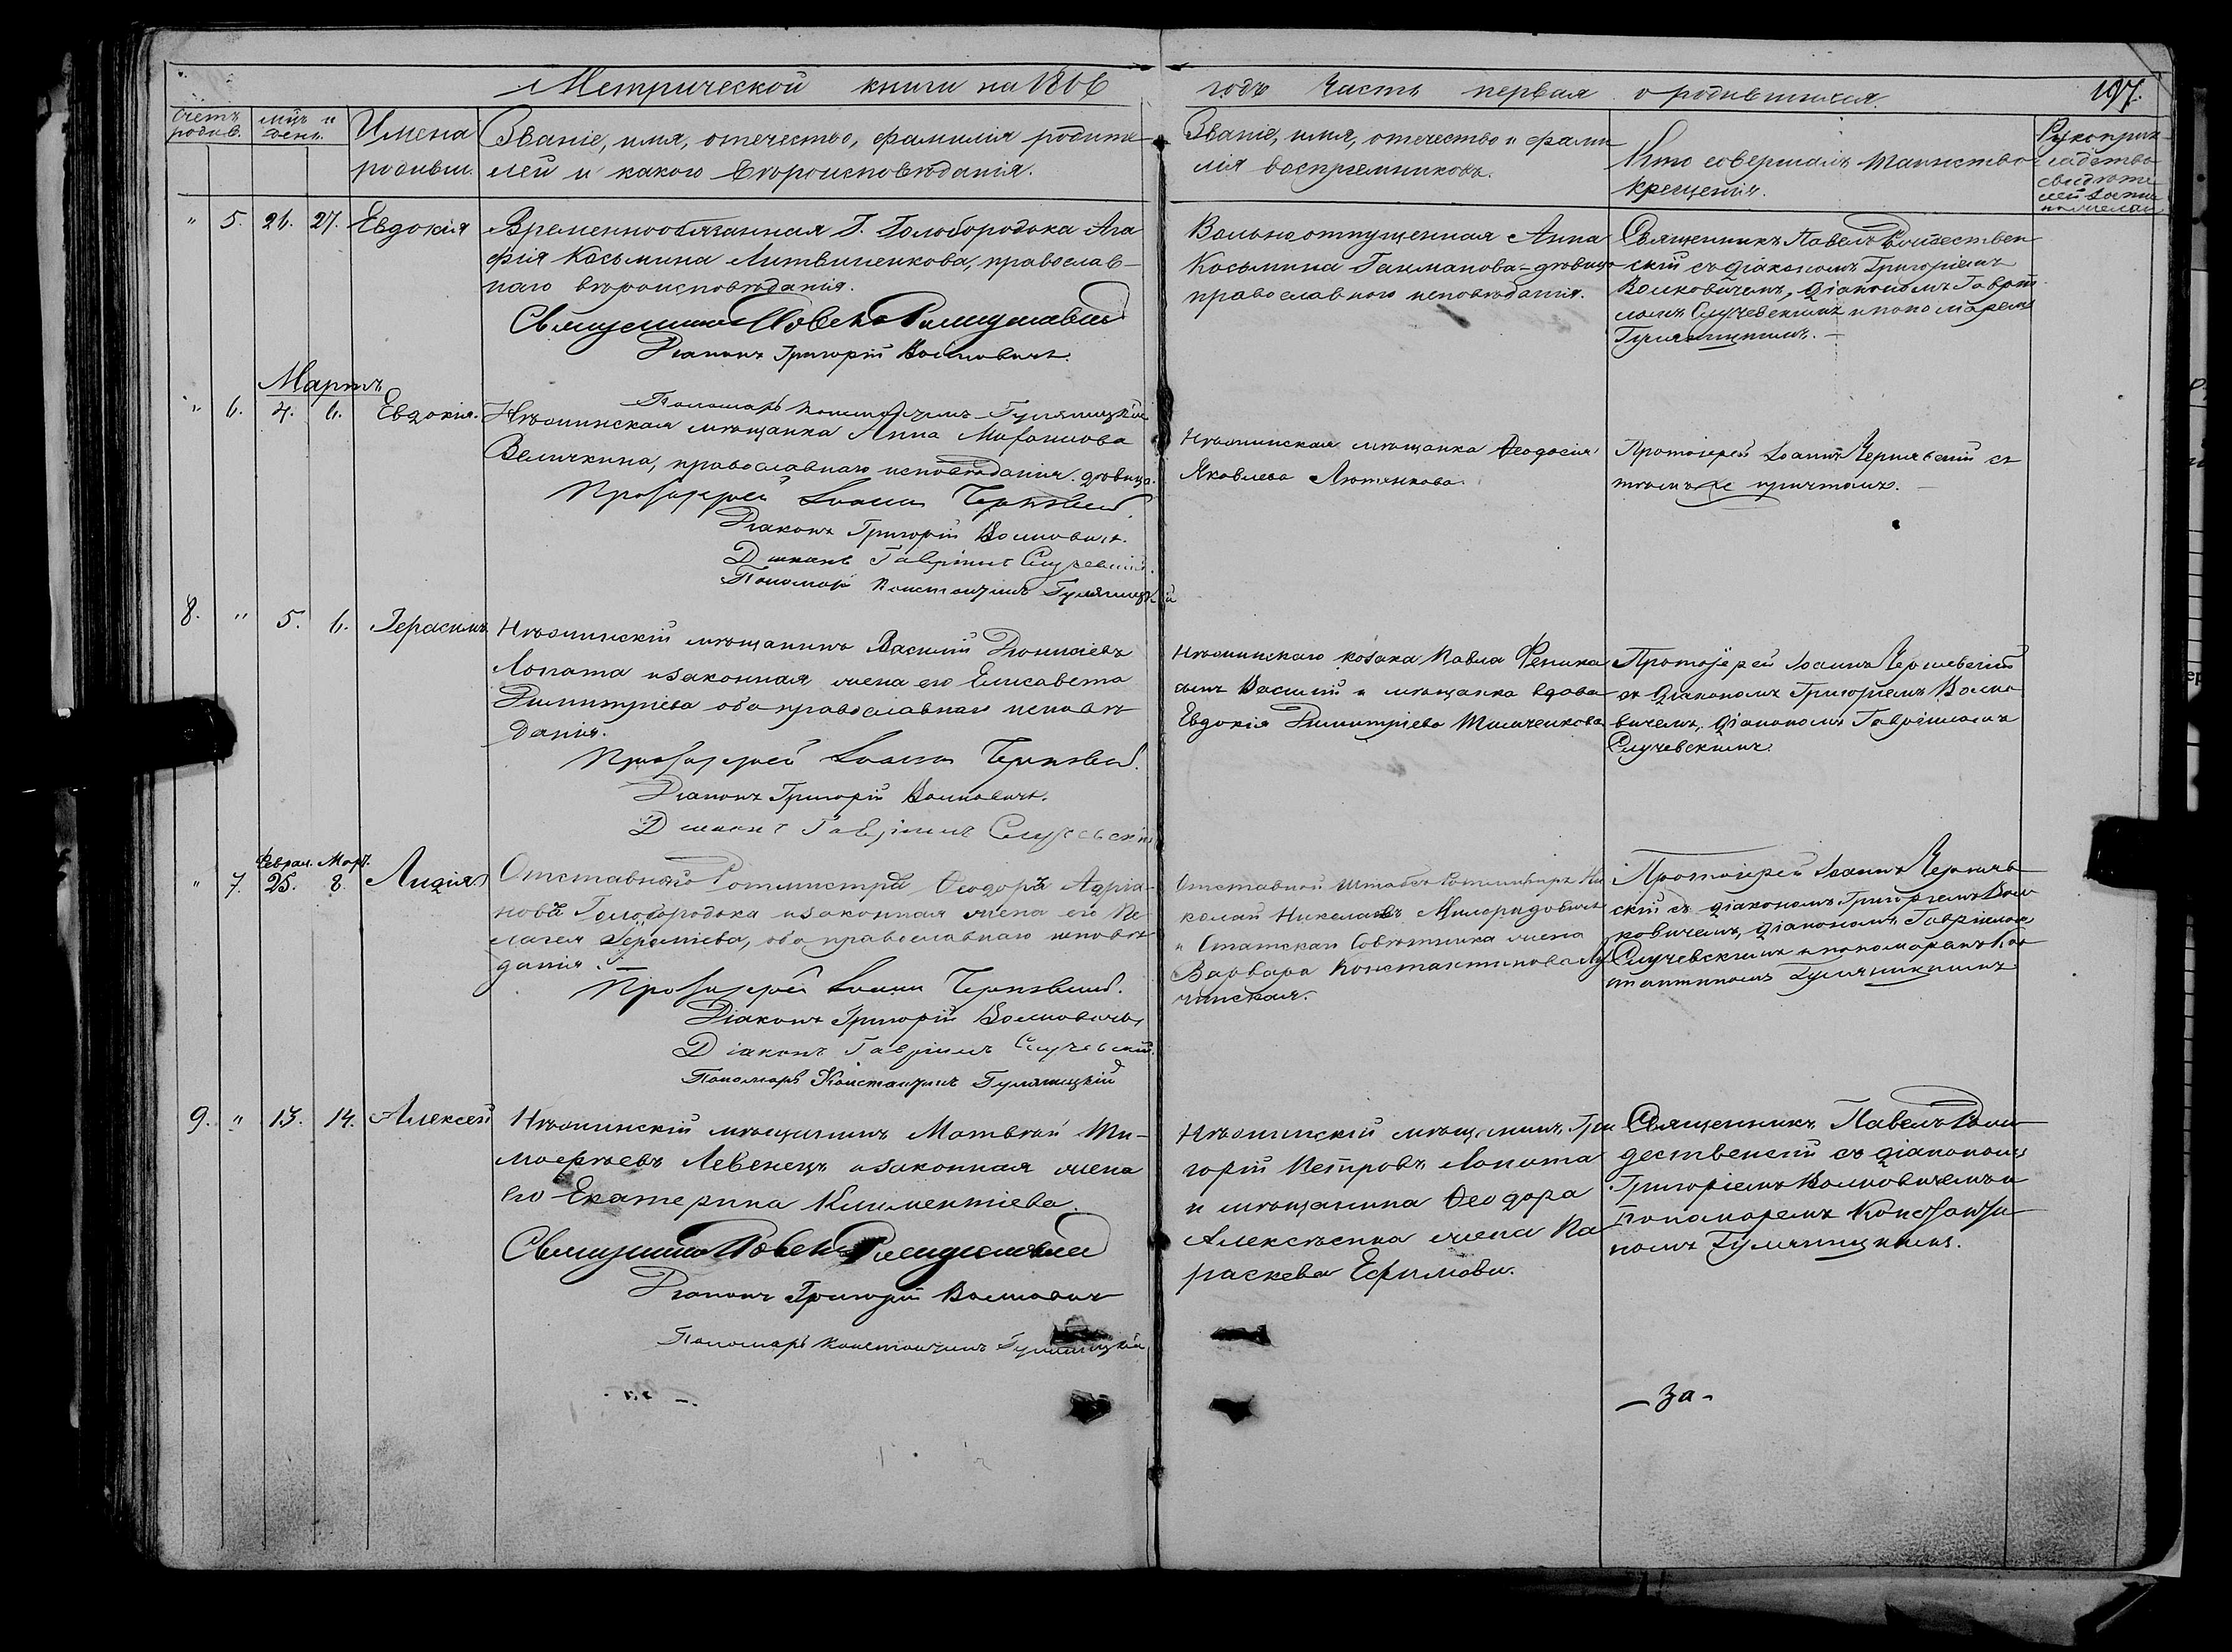 Метрической книги на 1866
годъ Часть первая о родившихся.
197.
Счетъ родив.
мцъ и день.
Имена родивш.
Званіе, имя, отечество, фамилія родите-
лей и какого вѣроисповѣданія.
Званіе, имя, отечество и фами-
лія воспріемниковъ.
Кто совершалъ таинство
крещенія.
Рукоприк-
ладство
свидѣте
лей
" 5. 26. 27. Евдокія
Временнообязанная Г. Голобородька Ага
фія Косьмина Литвиненкова, православ-
наго вѣроисповѣданія.
Священникъ Павелъ Рождественскій
Діаконъ Григорій Волковичъ.
Пономарь Константинъ Гуляницкій
Вольноотпущенная Анна
Косьмина Гашманова - дѣвица
православного исповѣданія.
Священникъ Павелъ Рождествен
скій съ діакономъ Григоріемъ
Волковичемъ, діакономъ Гавріи
ломъ Случевскимъ и пономаремъ
Гуляницкимъ. —
Мартъ
" 6. 4. 6. Евдокія.
Нѣжинская мѣщанка Анна
Величкина, православнаго исповѣданія. дѣвица.
Протоіерей Іоаннъ Чернявскій.
Діаконъ Григорій Волковичъ.
Діаконъ Гавріилъ Случевскій.
Пономарь Константинъ Гуляницкій
Нѣжинская мѣщанка Ѳеодосія
Яковлева
Протоіерей Іоаннъ Чернявскій съ
тѣмъ же причтомъ. —
8. " 5. 6. Герасимъ
Нѣжинскій мѣщанинъ Василій Діонисіевъ
Лопата и законная жена его Елисавета
Димитріева оба православнаго исповѣ
данія.
Протоіерей Іоаннъ Чернявскій.
Діаконъ Григорій Волковичъ.
Діаконъ Гавріилъ Случевскій
Нѣжинскаго козака Павла Феника
сынъ Василій и мѣщанка вдова
Евдокія Димитріева
Протоіерей Іоаннъ Чернявскій
съ діакономъ Григоріемъ Волко
вичемъ, діакономъ Гавріиломъ
Случевскимъ.
" 7. Феврал. 25. Март. 8. Лидія
Отставного Ротмистра Ѳеодора Адріа-
нова Голобородька и законная жена его Пе
лагея оба православнаго исповѣ
данія. —
Протоіерей Іоаннъ Чернявскій.
Діаконъ Григорій Волковичъ
Діаконъ Гавріилъ Случевскій.
Пономарь Константинъ Гуляницкій
Отставной Штабсъ Ротмистръ Ни
колай Николаевъ Милорадовичъ
и Статскаго Совѣтника жена
Варвара Константинова
чинская.
Протоіерей Іоаннъ Чернявь
скій съ діакономъ Григоріемъ Вол
ковичемъ, діакономъ Гавріиломъ
Случевскимъ и пономаремъ Кон
стантиномъ Гуляницкимъ
9. " 13. 14. Алексей
Нѣжинскій мѣщанинъ Матвѣй Ти-
мофѣевъ Левенецъ и законная жена
его Екатерина Климентіева.
Священникъ Павелъ Рождественскій
Діаконъ Григорій Волковичъ
Пономарь Константинъ Гуляницкій
Нѣжинскій мѣщанинъ Гри
горій Петровъ Лопата
и мѣщанина Ѳеодора
Алексѣенка жена Па
раскева Ефимова.
Священникъ Павелъ Рож
дественскій съ діакономъ
Григоріемъ Волковичемъ и
Пономаремъ Константи
номъ Гуляницкимъ.
- за -